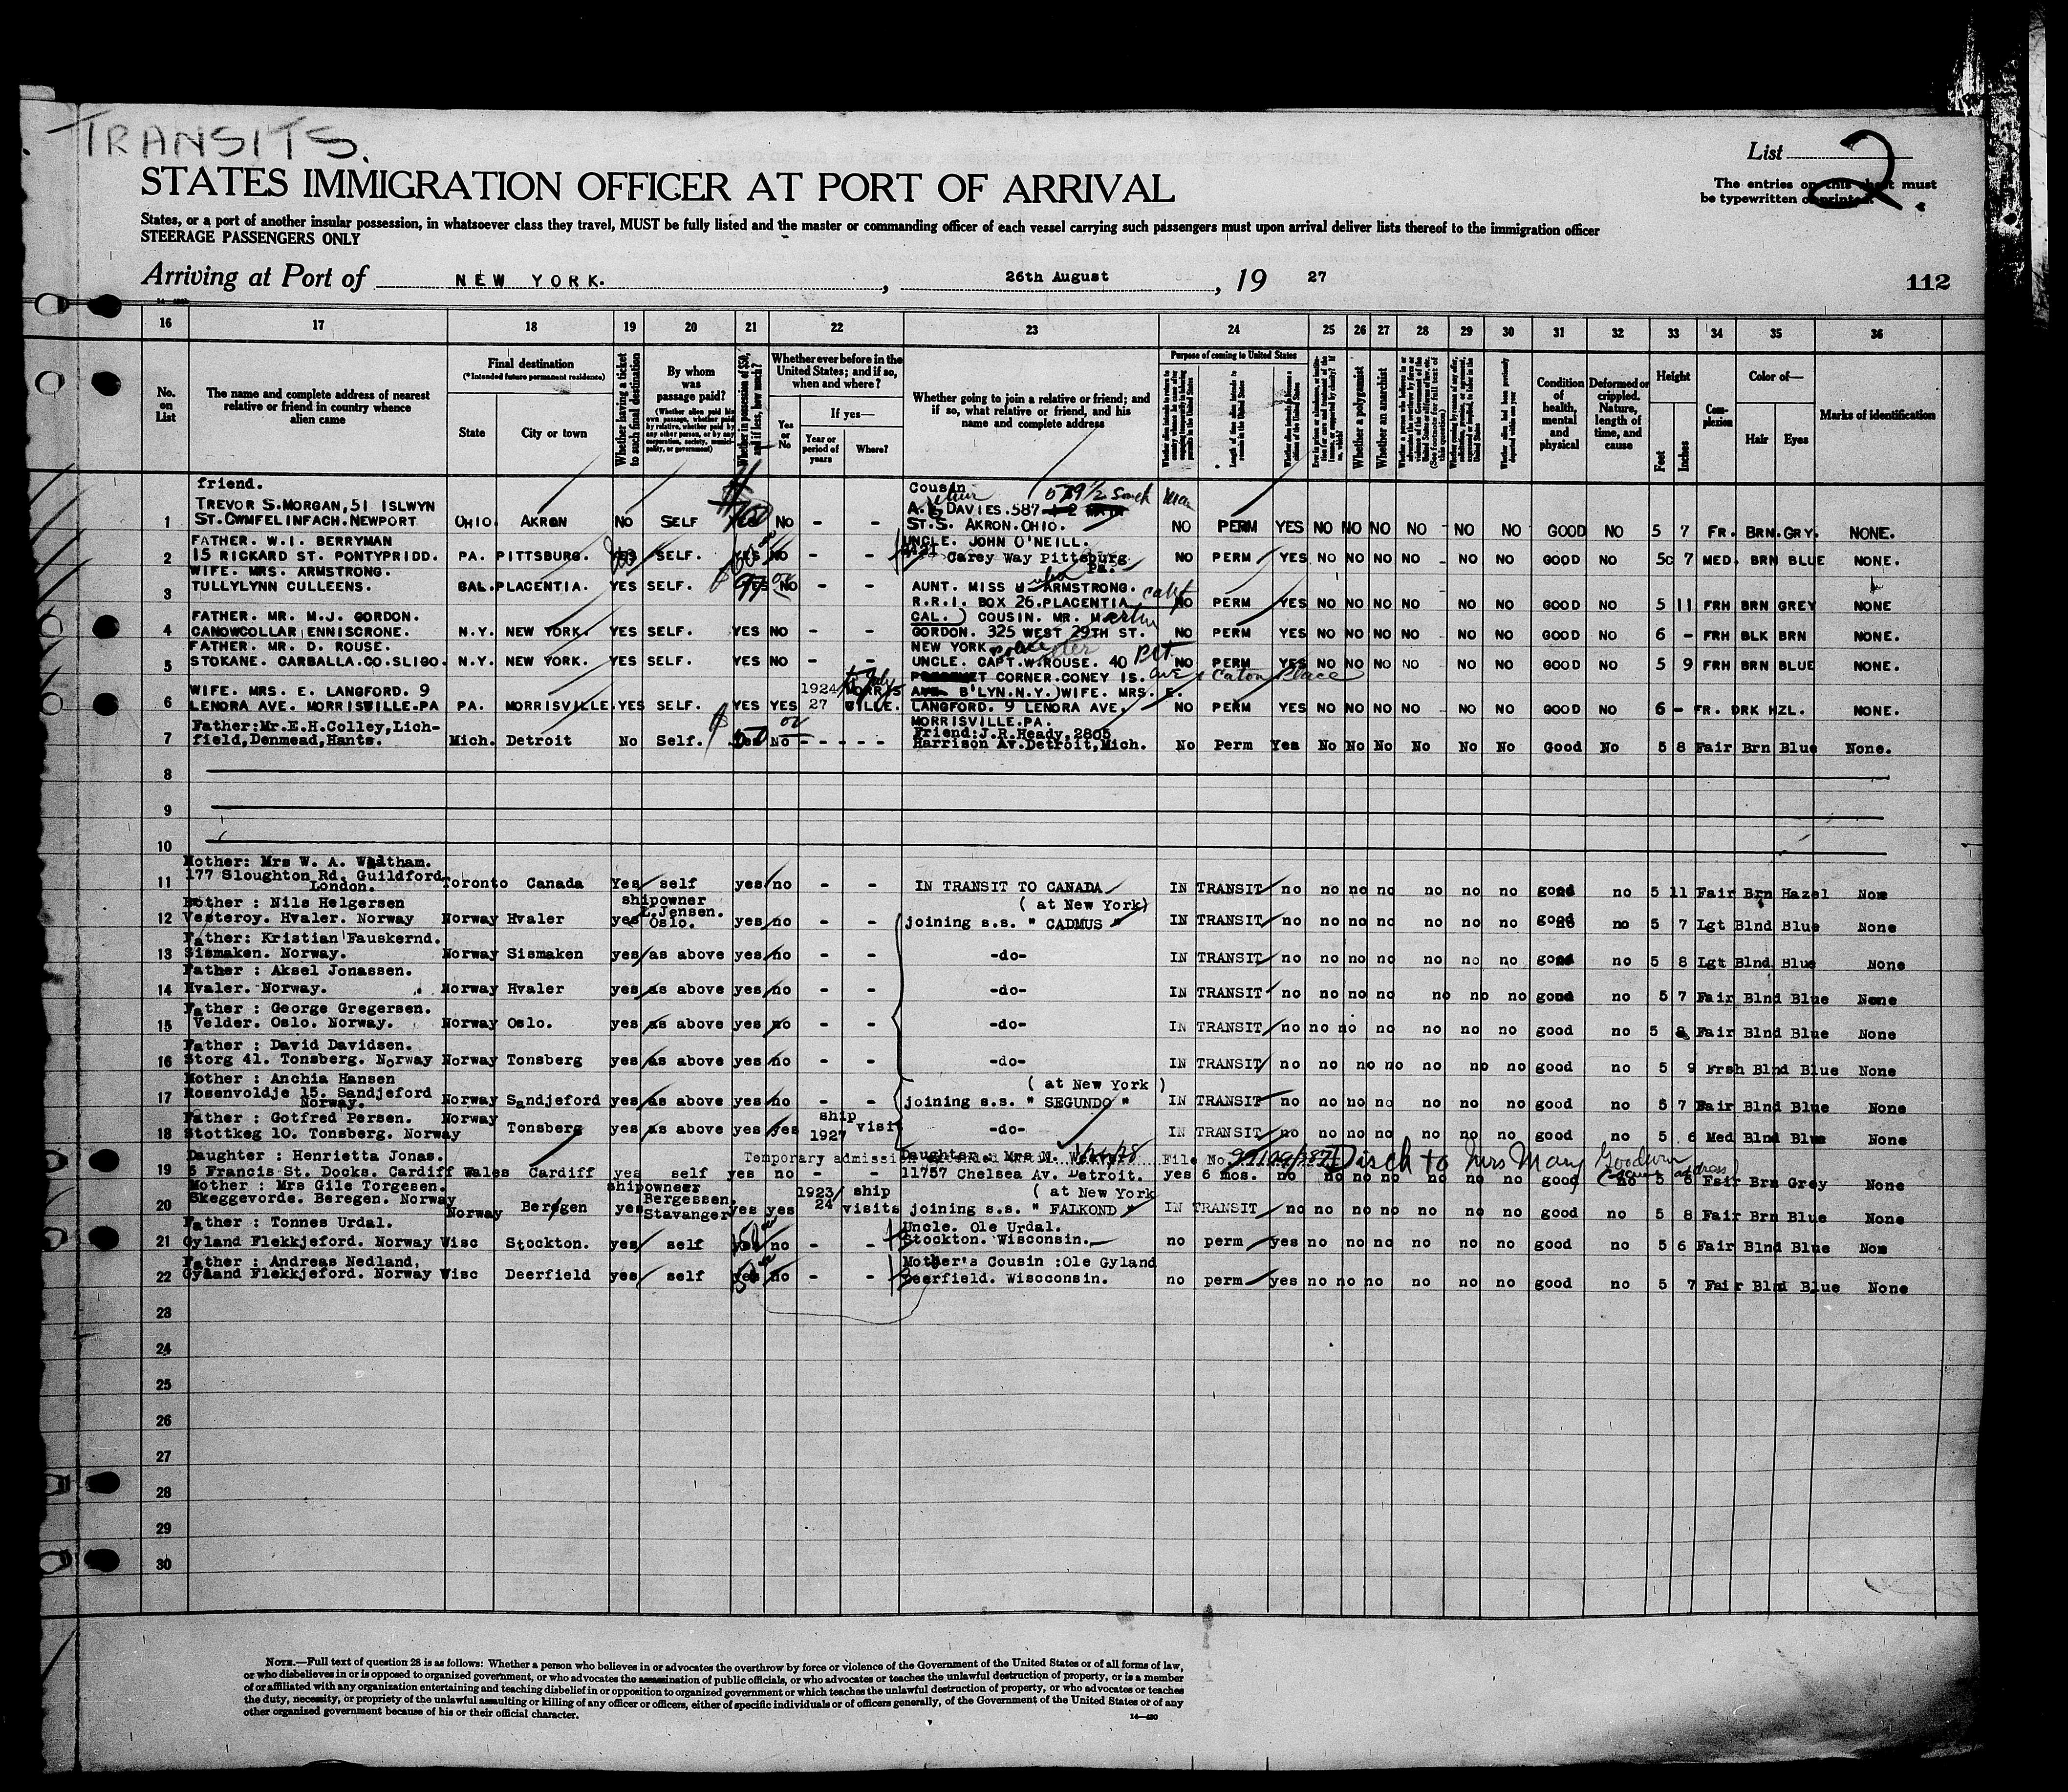 TRANSITS.
List 2.
STATES IMMIGRATION OFFICER AT PORT OF ARRIVAL
The entries on this sheet must
be typewritten or printed.
States, or a port of another insular possession, in whatsoever class they travel, MUST be fully listed and the master or commanding officer of each vessel carrying such passengers must upon arrival deliver lists thereof to the immigration officer
STEERAGE PASSENGERS ONLY
Arriving at Port of NEW YORK. , 26th August , 19 27
112
16 17 18 19 20 21 22 23 24 25 26 27 28 29 30 31 32 33 34 35 36
No. on List
The name and complete address of nearest relative or friend in country whence alien came
Final destination
(*Intended future permanent residence)
State City or town
Whether having a ticket to such final destination
By whom was passage paid?
Whether in possession of $50, and if less, how much?
Whether ever before in the United States; and if so, when and where?
Yes or No
If yes—
Year or period of years Where?
Whether going to join a relative or friend; and if so, what relative or friend, and his name and complete address
Purpose of coming to United States
Whether a polygamist
Whether an anarchist
Condition of health, mental and physical
Deformed or crippled. Nature, length of time, and cause
Height
Feet Inches
Complexion
Color of—
Hair Eyes
Marks of identification
friend. Cousin
TREVOR S.MORGAN,51 ISLWYN 579 1/2 South
1 ST.CWMFELINFACH.NEWPORT OHIO. AKRON NO SELF NO - - A. DAVIES.587 ST.S. AKRON.OHIO. NO PERM YES NO NO NO NO NO NO GOOD NO 5 7 FR. BRN.GRY. NONE.
FATHER. W.I. BERRYMAN UNCLE. JOHN O'NEILL.
2 15 RICKARD ST. PONTYPRIDD. PA. PITTSBURG. SELF. YES NO - - Carey Way Pittsburg Pa. NO PERM YES NO NO NO NO NO NO GOOD NO 5 7 MED. BRN BLUE NONE.
WIFE. MRS. ARMSTRONG.
3 TULLYLYNN CULLEENS. CAL.PLACENTIA. YES SELF. YES NO - - AUNT. MISS ARMSTRONG.
R.R.I. BOX 26.PLACENTIA CAL.) Calif NO PERM YES NO NO NO NO NO NO GOOD NO 5 11 FRH BRN GREY NONE
FATHER. MR. M.J. GORDON. COUSIN. MR. Martin
4 CANOWCOLLAR ENNISCRONE. N.Y. NEW YORK. YES SELF. YES NO - - GORDON. 325 WEST 29TH ST. NO PERM YES NO NO NO NO NO NO GOOD NO 6 - FRH BLK BRN NONE.
FATHER. MR. D. ROUSE. NEW YORK
5 STOKANE. CARBALLA.CO.SLIGO. N.Y. NEW YORK. YES SELF. YES NO - - UNCLE. CAPT.W.ROUSE. 40 NO PERM YES NO NO NO NO NO NO GOOD NO 5 9 FRH BRN BLUE NONE.
CORNER.CONEY IS. Ave & Caton Place
WIFE. MRS. E. LANGFORD. 9 1924 AVE. B'LYN.N.Y.)WIFE. MRS. E.
6 LENORA AVE. MORRISVILLE.PA PA. MORRISVILLE.YES SELF. YES YES 27 MORRISVILLE. LANGFORD. 9 LENORA AVE. NO PERM YES NO NO NO NO NO NO GOOD NO 6 - FR. DRK HZL. NONE.
MORRISVILLE.PA.
Father:Mr.E.H.Colley,Lich- Friend:J.R.Heady,2805
7 field,Denmead,Hants. Mich. Detroit No Self. No - - - - - Harrison Av.Detroit,Mich. No Perm Yes No No No No No No Good No 5 8 Fair Brn Blue None.
8
9
10
Mother: Mrs W. A. Waltham.
11 177 Sloughton Rd. Guildford London. Toronto Canada Yes self yes no - - IN TRANSIT TO CANADA IN TRANSIT no no no no no no no good no 5 11 Fair Brn Hazel None
Nils Helgersen shipowner ( at New York)
12 Vesteroy. Hvaler. Norway Norway Hvaler yes L.Jensen. Oslo. yes no - - joining s.s. " CADMUS " IN TRANSIT no no no no no no no good no 5 7 Lgt Blnd Blue None
Father: Kristian Fauskernd.
13 Sismaken. Norway. Norway Sismaken yes as above yes no - - -do- IN TRANSIT no no no no no no no good no 5 8 Lgt Blnd Blue None
Father : Aksel Jonassen.
14 Hvaler. Norway. Norway Hvaler yes as above yes no - - -do- IN TRANSIT no no no no no no no good no 5 7 Fair Blnd Blue None
Father : George Gregersen.
15 Velder. Oslo. Norway. Norway Oslo. yes as above yes no - - -do- IN TRANSIT no no no no no no no good no 5 8 Fair Blnd Blue None
Father : David Davidsen.
16 Storg 41. Tonsberg. Norway Norway Tonsberg yes as above yes no - - -do- IN TRANSIT no no no no no no no good no 5 9 Frsh Blnd Blue None
Mother : Anchia Hansen ( at New York )
17 Rosenvoldje 15. Sandjeford Norway. Norway Sandjeford yes as above yes no - - joining s.s. " SEGUNDO " IN TRANSIT no no no no no no no good no 5 7 Fair Blnd Blue None
Father : Gotfred Persen. Norway ship
18 Stottkeg 10. Tonsberg. Norway Tonsberg yes as above yes yes 1927 visit -do- IN TRANSIT no no no no no no no good no 5 6 Med Blnd Blue None
Daughter : Henrietta Jonas. Temporary admission Daughter : Mrs N. File No. Disch to Mrs Mary Goodwin
19 5 Francis St. Docks. Cardiff Wales Cardiff yes self yes no - - 11757 Chelsea Av. Detroit. yes 6 mos. no no no no no no no good no 5 5 Fair Brn Grey None
Mother : Mrs Gile Torgesen. shipowner ( at New York
20 Skeggevorde. Beregen. Norway Norway Bergen yes Bergessen. Stavanger yes yes 1923/24 ship visits joining s.s. " FALKOND " IN TRANSIT no no no no no no no good no 5 8 Fair Brn Blue None
Father : Tonnes Urdal. Uncle. Ole Urdal.
21 Gyland Flekkjeford. Norway Wisc Stockton. yes self no - - Stockton. Wisconsin. no perm yes no no no no no no good no 5 6 Fair Blnd Blue None
Father : Andreas Nedland, Mother's Cousin :Ole Gyland
22 Gyland Flekkjeford. Norway Wisc Deerfield yes self no - - Deerfield. Wisoconsin. no perm yes no no no no no no good no 5 7 Fair Blnd Blue None
23
24
25
26
27
28
29
30
NOTE.—Full text of question 28 is as follows: Whether a person who believes in or advocates the overthrow by force or violence of the Government of the United States or of all forms of law,
or who disbelieves in or is opposed to organized government, or who advocates the assassination of public officials, or who advocates or teaches the unlawful destruction of property, or is a member
of or affiliated with any organization entertaining and teaching disbelief in or opposition to organized government or which teaches the unlawful destruction of property, or who advocates or teaches
the duty, necessity, or propriety of the unlawful assaulting or killing of any officer or officers, either of specific individuals or of officers generally, of the Government of the United States or of any
other organized government because of his or their official character.
14—430